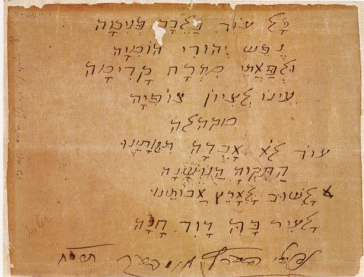 כָּל עוֹד בַּלֵּבָב פְּנִימָה
נֶפֶשׁ יְהוּדִי הוֹמִיָּה
וּלְפַאֲתֵי מִזְרָח קָדִימָה
עֵינוֹ לְצִיּוֹן צוֹפִיָּה
מקהלה
עוֹד לֹא אָבְדָה תִּקְוָתֵנוּ
הַתִּקְוָה הַנּוֹשָׁנָה
לָשׁוּב לְאֶרֶץ אֲבוֹתֵינוּ
לָעִיר בָּהּ דָּוִד חָנָה
נפתלי הרץ אימבר